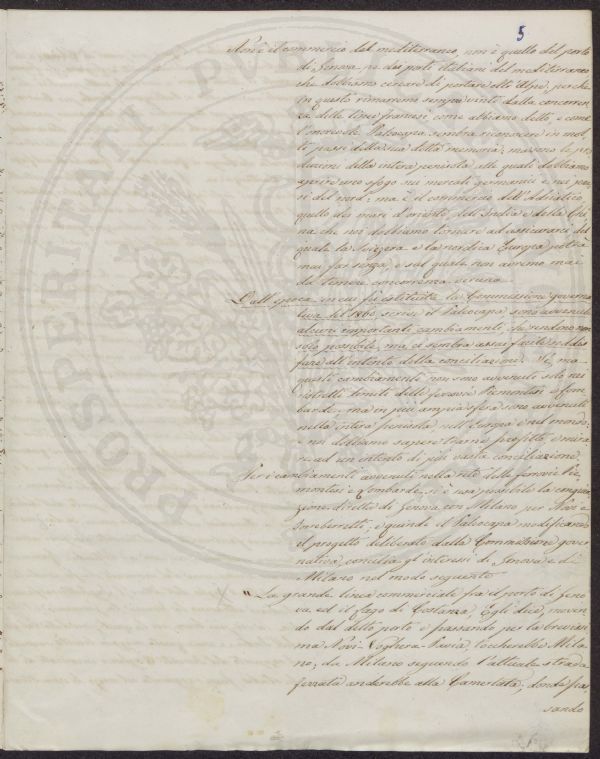 5
Non è il commercio del mediterraneo, non è quello del porto
di Genova, nè dei porti italiani del mediterraneo
che dobbiamo cercare di portare oltre Alpi, perchè
in questo rimarremo sempre vinti dalla concorren
za delle linee francesi come abbiamo detto e come
l'onorevole Paleocapa sembra riconoscere in mol
ti passi della sua dotta memoria; ma sono le pro
duzioni della intera penisola alle quali dobbiamo
aprire uno sfogo sui mercati germanici e nei pae
si del nord: ma è il commercio dell'Adriatico
quello dei mari d'oriente, dell'India e della Chi
na che noi dobbiamo tornare ad assicurarci del
quale la Svizzera e la nordica Europa potrà
mai far senza, e sul quale non avremo mai
da temere concorrenza veruna.
Dall'epoca in cui fu istituita la Commissione governa
tiva del 1860, scrive il Paleocapa sono avvenuti
alcuni importanti cambiamenti che rendono non
solo possibile, ma ci sembra assai facile soddis
fare all'intento della conciliazione. Sì, ma
questi cambiamenti non sono avvenuti solo nei
ristretti limiti delle ferrovie Piemontesi e Lom
barde, ma in più ampia sfera sono avvenuti
nella intera penisola, nell'Europa e nel mondo;
e noi dobbiamo sapere trarne profitto e mira
re ad un intento di più vasta conciliazione.
Per i cambiamenti avvenuti nella rete delle ferrovie Pie
montesi e Lombarde, si è resa possibile la congiun
zione diretta di Genova con Milano per Novi e
Torreberretti, e quindi il Paleocapa modificando
il progetto deliberato dalla Commissione gover
nativa, concilia gl'interessi di Genova e di
Milano nel modo seguente
"La grande linea commerciale fra il porto di Geno
va ed il Lago di Costanza, Egli dice, moven
do dal detto porto e passando per la brevissi
ma Novi-Voghera-Pavia, toccherebbe Mila
no; da Milano seguendo l'attuale strada
ferrata anderebbe alla Camerlata; donde pas
sando
PROSPERITATI PUBLICAE